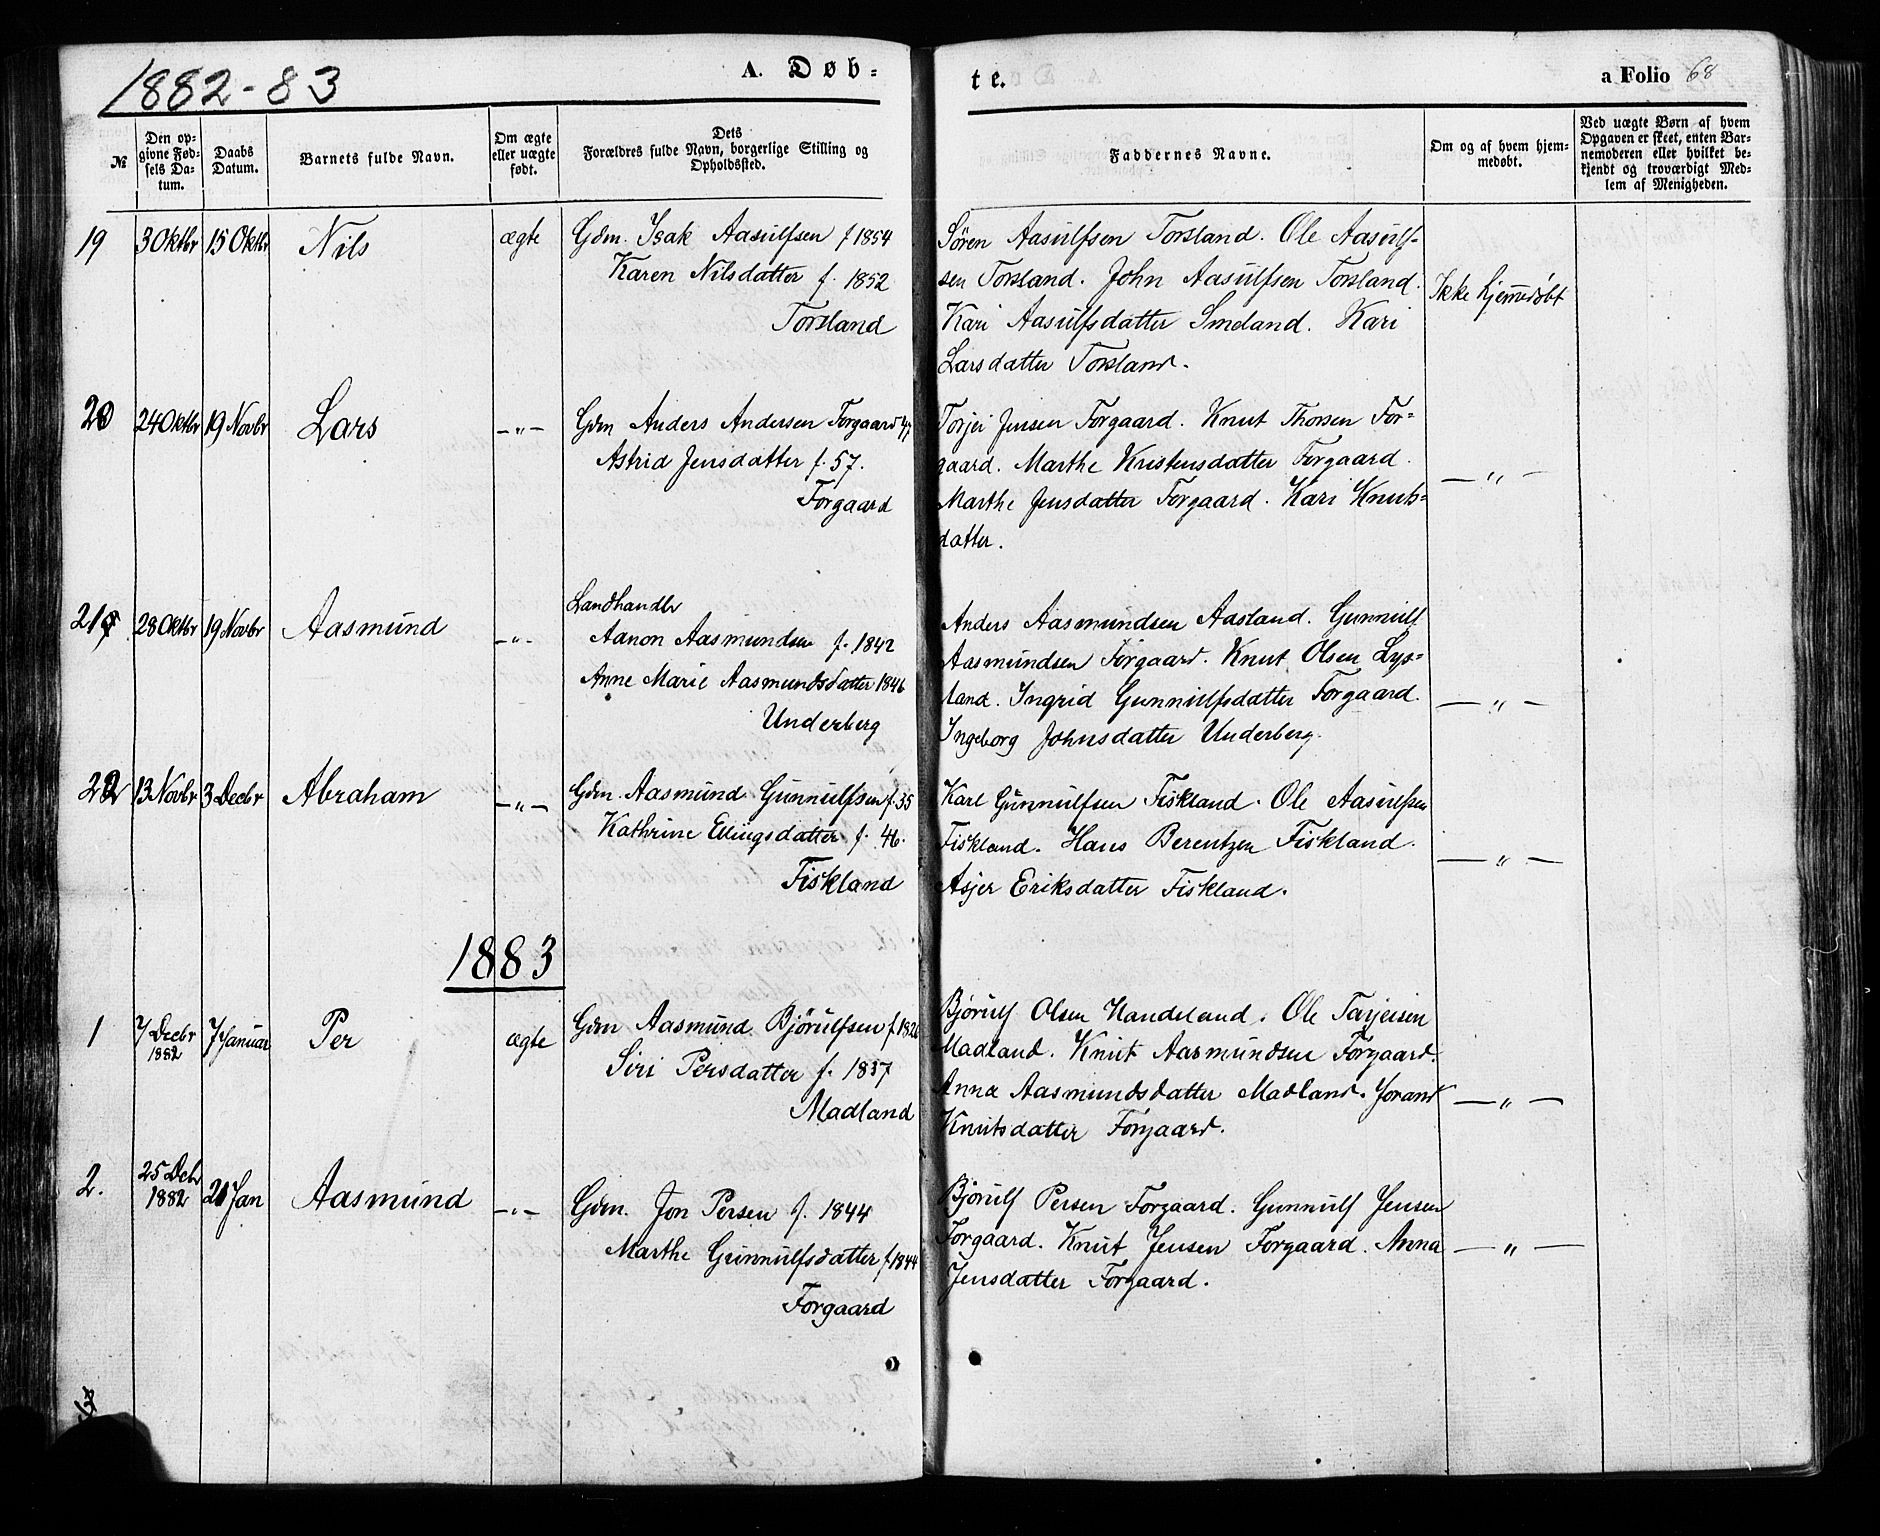 1882-83
A. Døb-
te.
a Folio 68
№
Den op-
givne Fød-
sels Da-
tum.
Daabs
Datum.
Barnets fulde Navn.
Om ægte
eller uægte
født.
Dets
Forældres fulde Navn, borgerlige Stilling og
Opholdssted.
Faddernes Navne.
Om og af hvem hjem-
medøbt.
Ved uægte Børn af hvem
Opgaven er skeet, enten Bar-
nemoderen eller hvilket be-
kjendt og troværdigt Med-
lem af Menigheden.
19
3 Oktbr
15 Oktbr
Nils
ægte
Gdm. Isak Aasulfsen f 1854
Karen Nilsdatter f. 1852
Torsland
Søren Aasulfsen Torsland. Ole Aasulf-
sen Torsland. John Aasulfsen Torsland.
Kari Aasulfsdatter Smeland. Kari
Larsdatter Torsland.
Ikke hjemedøbt
20
24 Oktbr
19 Novbr
Lars
—„—
Gdm Anders Andersen Forgaard 47
Astrid Jensdatter f. 57.
Forgaard
Torjei Jensen Forgaard. Knut Thorsen For-
gaard. Marthe Kristensdatter Forgaard.
Marthe Jensdatter Forgaard. Kari Knuts-
datter.
—„—
21
28 Oktbr
19 Novbr
Aasmund
—„—
Landhandlr
Aanon Aasmundsen f. 1842
Anne Marie Aasmundsdatter 1846
Underberg
Anders Aasmundsen Aasland. Gunnulf
Aasmundsen Forgaard. Knut Olsen Lys-
land. Ingrid Gunnulfsdatter Forgaard.
Ingeborg Johnsdatter Underberg.
—„—
22
13 Novbr
3 Decbr
Abraham
—„—
Gdm. Aasmund Gunnulfsen f. 35
Kathrine Ellingsdatter f. 46.
Fiskland
Karl Gunnulfsen Fiskland. Ole Aasulfsen
Fiskland. Hans Berentzen Fiskland.
Asjer Eriksdatter Fiskland.
—„—
1883
1
7 Decbr
1882
7 Januar
Per
ægte
Gdm Aasmund Bjørulfsen f. 1826
Siri Persdatter f. 1837
Madland
Bjørulf Olsen Handeland. Ole Tarjeisen
Madland. Knut Aasmundsen Forgaard.
Anna Aasmundsdatter Madland. Jorand
Knutsdatter Forgaard.
—„—
2.
25 Decbr
1882
21 Jan
Aasmund
—„—
Gdm. Jon Persen f. 1844
Marthe Gunnulfsdatter f 1844
Forgaard
Bjørulf Persen Forgaard. Gunnulf Jensen
Forgaard. Knut Jensen Forgaard. Anna
Jensdatter Forgaard.
—„—